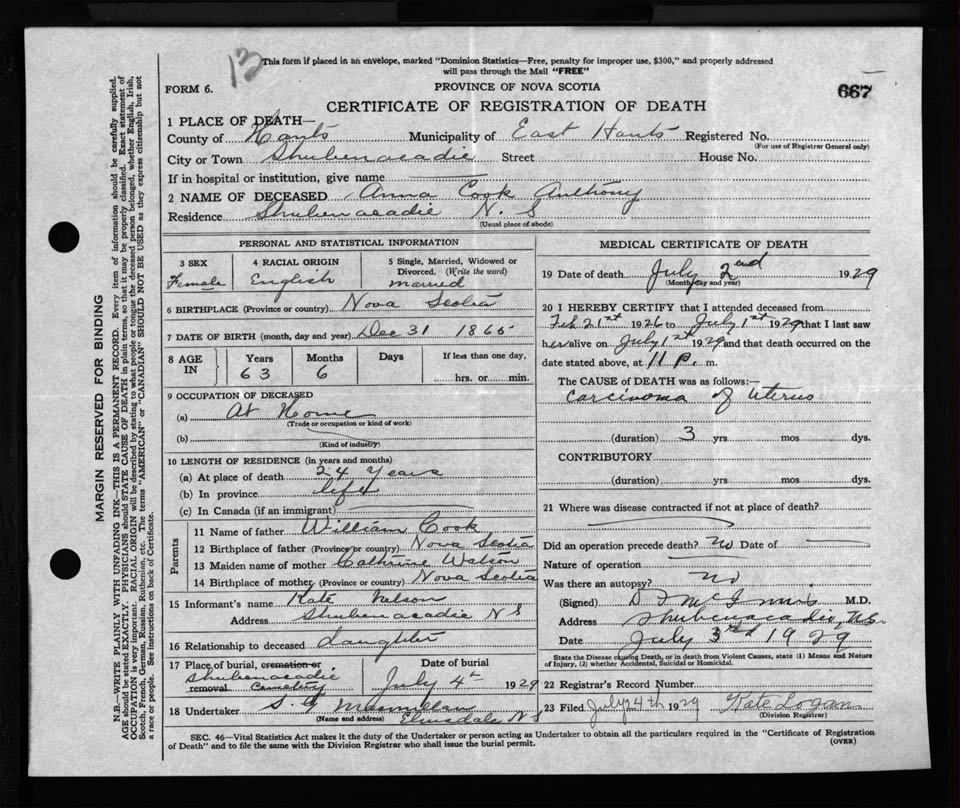 13
This form if placed in an envelope, marked "Dominion Statistics—Free, penalty for improper use, $300," and properly addressed
will pass through the Mail "FREE"
FORM 6.
PROVINCE OF NOVA SCOTIA
667
CERTIFICATE OF REGISTRATION OF DEATH
1 PLACE OF DEATH—
County of Hants Municipality of East Hants Registered No.
(For use of Registrar General only)
City or Town Shubenacadie Street House No.
If in hospital or institution, give name
2 NAME OF DECEASED Anna Cook Anthony
Residence Shubenacadie N. S
(Usual place of abode)
PERSONAL AND STATISTICAL INFORMATION
3 SEX
Female
4 RACIAL ORIGIN
English
5 Single, Married, Widowed or
Divorced. (Write the word)
married
6 BIRTHPLACE (Province or country) Nova Scotia
7 DATE OF BIRTH (month, day and year) Dec 31 1865
8 AGE IN
Years Months Days If less than one day,
63 6 hrs. or min.
9 OCCUPATION OF DECEASED
(a) At Home
(Trade or occupation or kind of work)
(b)
(Kind of industry)
10 LENGTH OF RESIDENCE (in years and months)
(a) At place of death 24 Years
(b) In province life
(c) In Canada (if an immigrant)
Parents
11 Name of father William Cook
12 Birthplace of father (Province or country) Nova Scotia
13 Maiden name of mother Cathrine Watson
14 Birthplace of mother (Province or country) Nova Scotia
15 Informant's name Kate Nelson
Address Shubenacadie N S
16 Relationship to deceased daughter
17 Place of burial, cremation or
Shubenacadie
removal Cemetery
Date of burial
July 4th 1929
18 Undertaker S. G Macmillan
(Name and address) Elmsdale N S
MEDICAL CERTIFICATE OF DEATH
19 Date of death July 2nd 1929
(Month, day and year)
20 I HEREBY CERTIFY that I attended deceased from
Feb 21st 1926 to July 1st 1929 that I last saw
her alive on July 1st 1929 and that death occurred on the
date stated above, at 11 p. m.
The CAUSE OF DEATH was as follows:—
Carcinoma of Uterus
(duration) 3 yrs mos dys.
CONTRIBUTORY
(duration) yrs mos dys.
21 Where was disease contracted if not at place of death?
Did an operation precede death? no Date of
Nature of operation
Was there an autopsy? no
(Signed) D F McInnis M.D.
Address Shubenacadie, N.S.
Date July 3rd 1929
State the Disease causing Death, or in death from Violent Causes, state (1) Means and Nature
of Injury, (2) whether Accidental, Suicidal or Homicidal.
22 Registrar's Record Number
23 Filed July 24th 1929 Kate Logan
(Division Registrar)
SEC. 46—Vital Statistics Act makes it the duty of the Undertaker or person acting as Undertaker to obtain all the particulars required in the "Certificate of Registration
of Death" and to file the same with the Division Registrar who shall issue the burial permit.
(OVER)
MARGIN RESERVED FOR BINDING
N.B.—WRITE PLAINLY WITH UNFADING INK—THIS IS A PERMANENT RECORD. Every item of information should be carefully supplied.
AGE should be stated EXACTLY. PHYSICIANS should STATE CAUSE OF DEATH in plain terms, so that it may be properly classified. Exact statement of
OCCUPATION is very important. RACIAL ORIGIN will be described by stating to what people or tongue the deceased person belonged, whether English, Irish,
Scotch, French, German, Russian, Ruthenian, etc. The terms "AMERICAN" or "CANADIAN" SHOULD NOT BE USED as they express citizenship but not
a race or people. See instructions on back of Certificate.